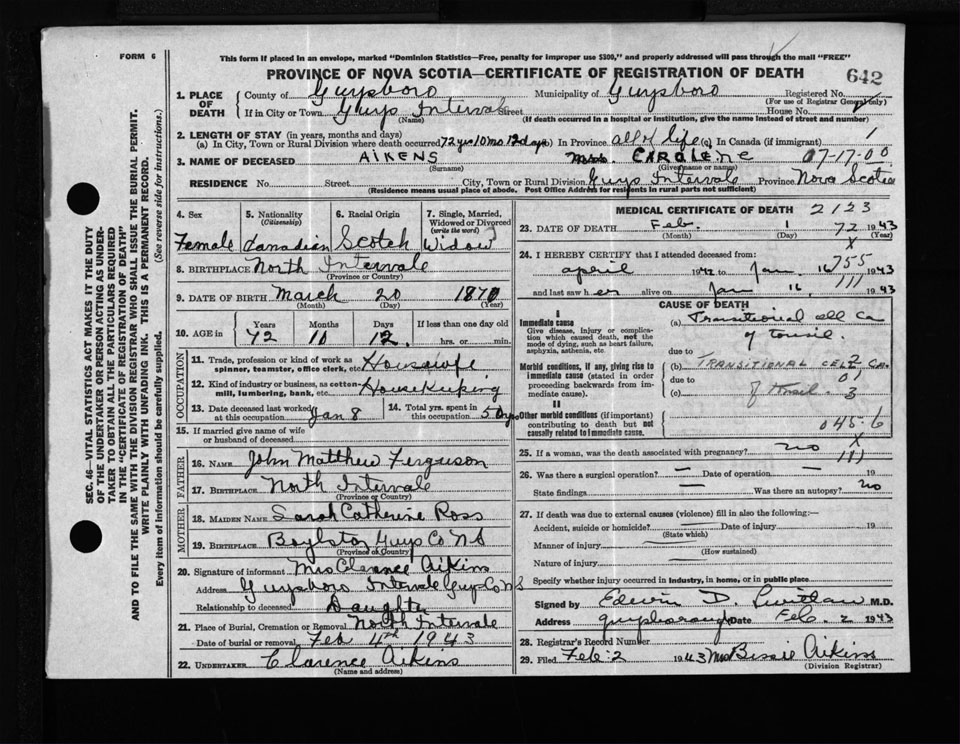 FORM 6
This form if placed in an envelope, marked "Dominion Statistics—Free, penalty for improper use $300," and properly addressed will pass through the mail "FREE"
PROVINCE OF NOVA SCOTIA—CERTIFICATE OF REGISTRATION OF DEATH
642
1. PLACE OF DEATH
County of Guysboro Municipality of Guysboro Registered No.
(For use of Registrar General only)
If in City or Town Guys Intervale Street House No.
(Name) (If death occurred in a hospital or institution, give the name instead of street and number)
2. LENGTH OF STAY (in years, months and days)
(a) In City, Town or Rural Division where death occurred 72 yrs 10 mo 12 days (b) In Province all of life (c) In Canada (if immigrant) 1
3. NAME OF DECEASED AIKENS Mrs. CAROLENE 07-17-00
(Surname) (Given name or names)
RESIDENCE No. Street City, Town or Rural Division Guys Intervale Province Nova Scotia
(Residence means usual place of abode. Post Office Address for residents in rural parts not sufficient)
4. Sex
Female
5. Nationality
(Citizenship)
Canadian
6. Racial Origin
Scotch
7. Single, Married, Widowed or Divorced
(write the word)
Widow
8. BIRTHPLACE North Intervale
(Province or Country)
9. DATE OF BIRTH March 20 1870
(Month) (Day) (Year)
10. AGE in
Years Months Days If less than one day old
72 10 12 hrs. or min.
OCCUPATION
11. Trade, profession or kind of work as spinner, teamster, office clerk, etc. Housewife
12. Kind of industry or business, as cotton-mill, lumbering, bank, etc. House Keeping
13. Date deceased last worked at this occupation Jan 8
14. Total yrs. spent in this occupation 50 yrs
15. If married give name of wife or husband of deceased
FATHER
16. NAME John Matthew Ferguson
17. BIRTHPLACE North Intervale
(Province or Country)
MOTHER
18. MAIDEN NAME Sarah Catherine Ross
19. BIRTHPLACE Boylston Guys Co N S
(Province or Country)
20. Signature of informant Mrs Clarence Aikins
Address Guysboro Intervale Guys Co N S
Relationship to deceased Daughter
21. Place of Burial, Cremation or Removal North Intervale
Date of burial or removal Feb 4th 1943
22. UNDERTAKER Clarence Aikins
(Name and address)
MEDICAL CERTIFICATE OF DEATH 2123
23. DATE OF DEATH Feb. 1 1943
72
(Month) (Day) (Year)
X
24. I HEREBY CERTIFY that I attended deceased from:
april 1942 to Jan. 16 1943
755
and last saw her alive on Jan 16, 1943
111
CAUSE OF DEATH
I
Immediate cause
Give disease, injury or complication which caused death, not the mode of dying, such as heart failure, asphyxia, asthenia, etc.
(a) Transitional cell Ca of tonsil.
due to
Morbid conditions, if any, giving rise to immediate cause (stated in order proceeding backwards from immediate cause).
(b) TRANSITIONAL CELL CA.
due to
(c) of tonsil
2
01
3
II
Other morbid conditions (if important) contributing to death but not causally related to immediate cause.
045-6
X
25. If a woman, was the death associated with pregnancy? no
111
26. Was there a surgical operation? — Date of operation — 19
State findings — Was there an autopsy? no
27. If death was due to external causes (violence) fill in also the following:—
Accident, suicide or homicide? Date of injury 19
(State which)
Manner of injury
(How sustained)
Nature of injury
Specify whether injury occurred in industry, in home, or in public place
Signed by Edwin D. M.D.
Address guysborough Date Feb. 2 1943
28. Registrar's Record Number
29. Filed Feb: 2 1943 Mrs Bessie Aikins
(Division Registrar)
SEC. 46—VITAL STATISTICS ACT MAKES IT THE DUTY
OF THE UNDERTAKER OR PERSON ACTING AS UNDER-
TAKER TO OBTAIN ALL THE PARTICULARS REQUIRED
IN THE "CERTIFICATE OF REGISTRATION OF DEATH"
AND TO FILE THE SAME WITH THE DIVISION REGISTRAR WHO SHALL ISSUE THE BURIAL PERMIT.
WRITE PLAINLY WITH UNFADING INK. THIS IS A PERMANENT RECORD.
Every item of information should be carefully supplied. (See reverse side for instructions.)